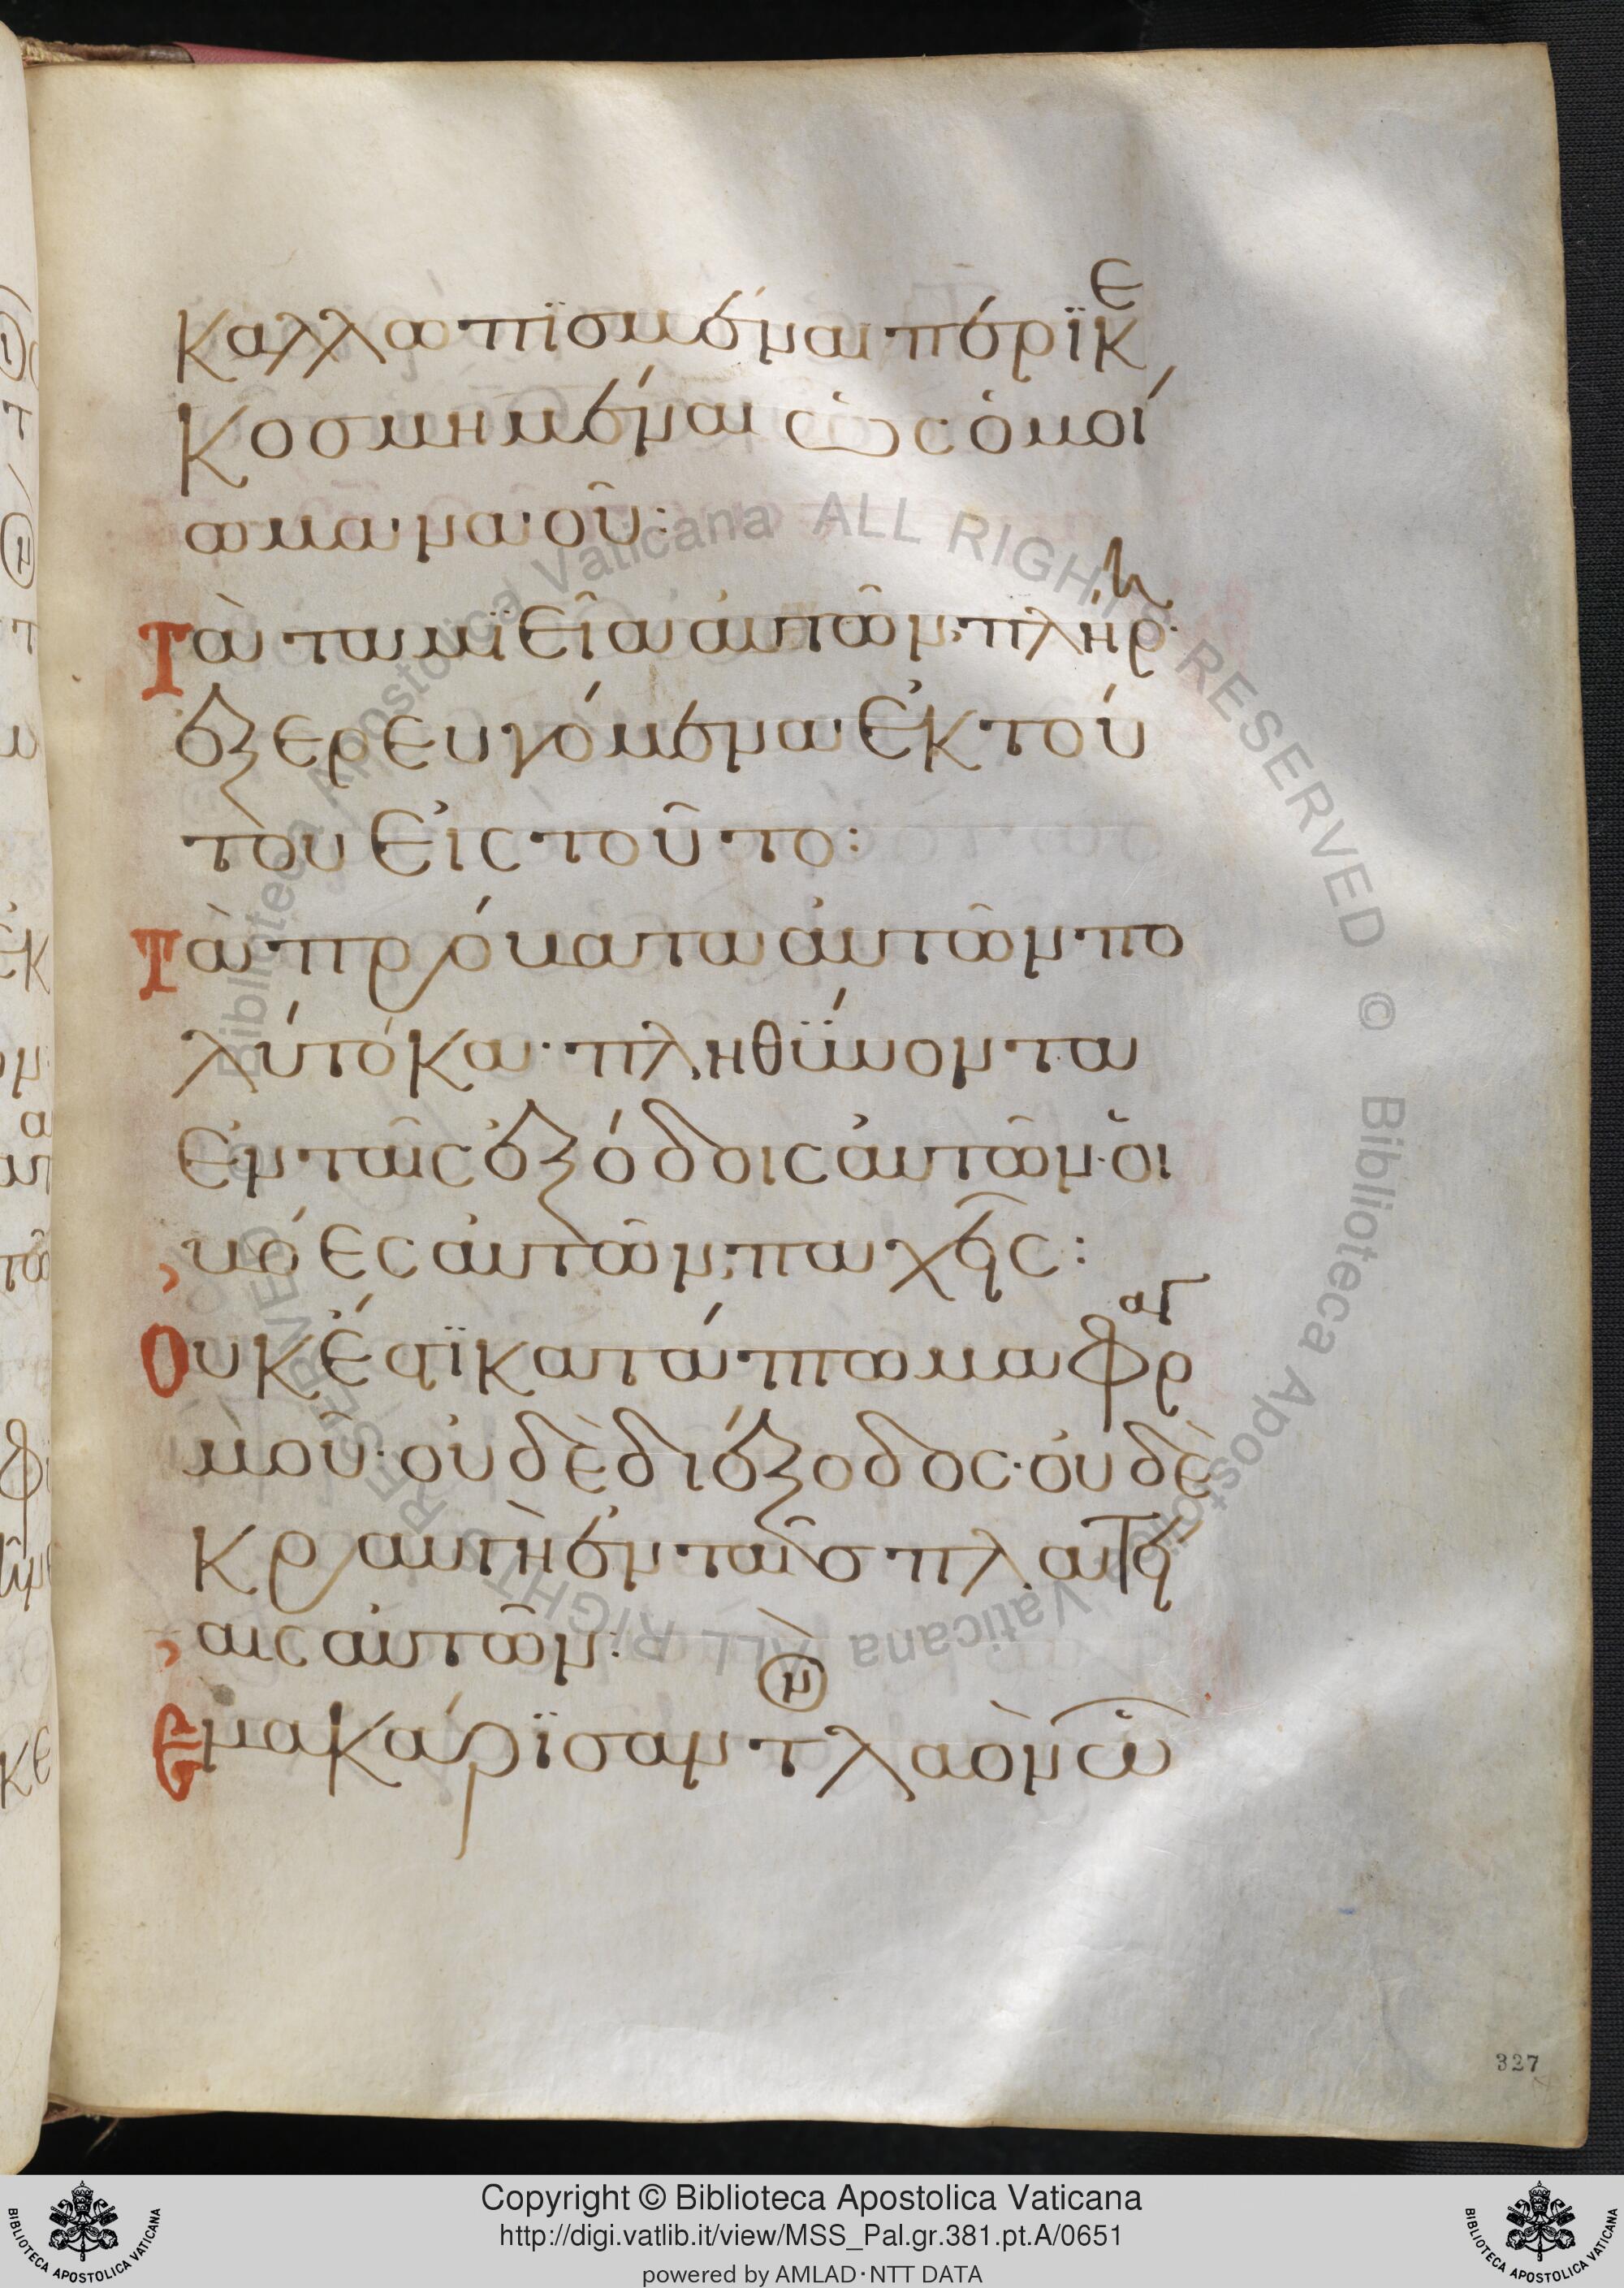 καλλωπϊσμέναι περϊκε
κοσμημέναι ὡς ὁμοί
ωμα ναοῦ:
Τὰ ταμϊεῖα αυτῶν πλήρη·
ἐξερευγόμενα ἐκ τού
του εἰς τοῦτο:
Τὰ πρόβατα αὐτῶν πο
λύτόκα· πληθϋνοντα
ἐν ταῖς ἐξόδοις αὐτῶν· ὁι
βόες αὐτῶν παχεῖς:
Ουκ ἔστϊ κατάπτωμα φρα
γμοῦ· οὐδὲ διέξοδος· οὐδὲ
κραυγὴ ἐν ταῖς πλατεί
αις αὐτῶν:
Ἐμακάρϊσαν τὸν λαὸν ὧ
327
Biblioteca Apostolica Vaticana ALL RIGHTS RESERVED © Biblioteca Apostolica Vaticana ALL RIGHTS RESERVED
Copyright © Biblioteca Apostolica Vaticana
http://digi.vatlib.it/view/MSS_Pal.gr.381.pt.A/0651
powered by AMLAD·NTT DATA
BIBLIOTECA APOSTOLICA VATICANA
BIBLIOTECA APOSTOLICA VATICANA